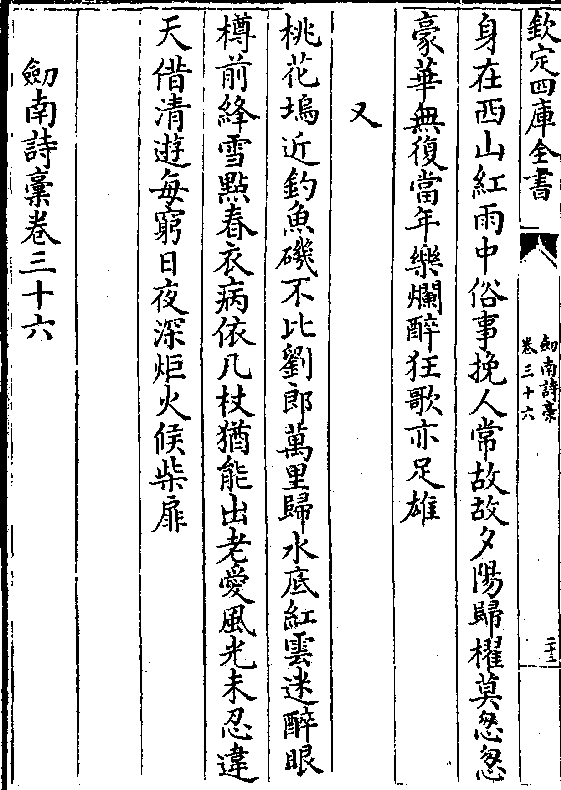 欽定四庫全書
劒南詩槀
卷三十六
二十三
身在西山紅雨中俗事挽人常故故夕陽歸櫂莫怱怱
豪華無復當年樂爛醉狂歌亦足雄
又
桃花塢近釣魚磯不比劉郎萬里歸水底紅雲迷醉眼
樽前絳雪點春衣病依几杖猶能出老愛風光未忍違
天借清遊每窮日夜深炬火候柴扉
劒南詩槀卷三十六